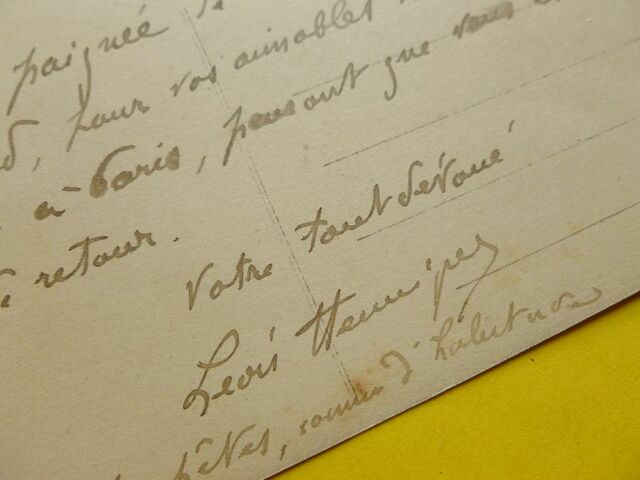 poignée de
, pour vos aimables
à Paris, pensant que vous
retour.
Votre tout dévoué
Léon Hennique
fêtes, comme d'habitude